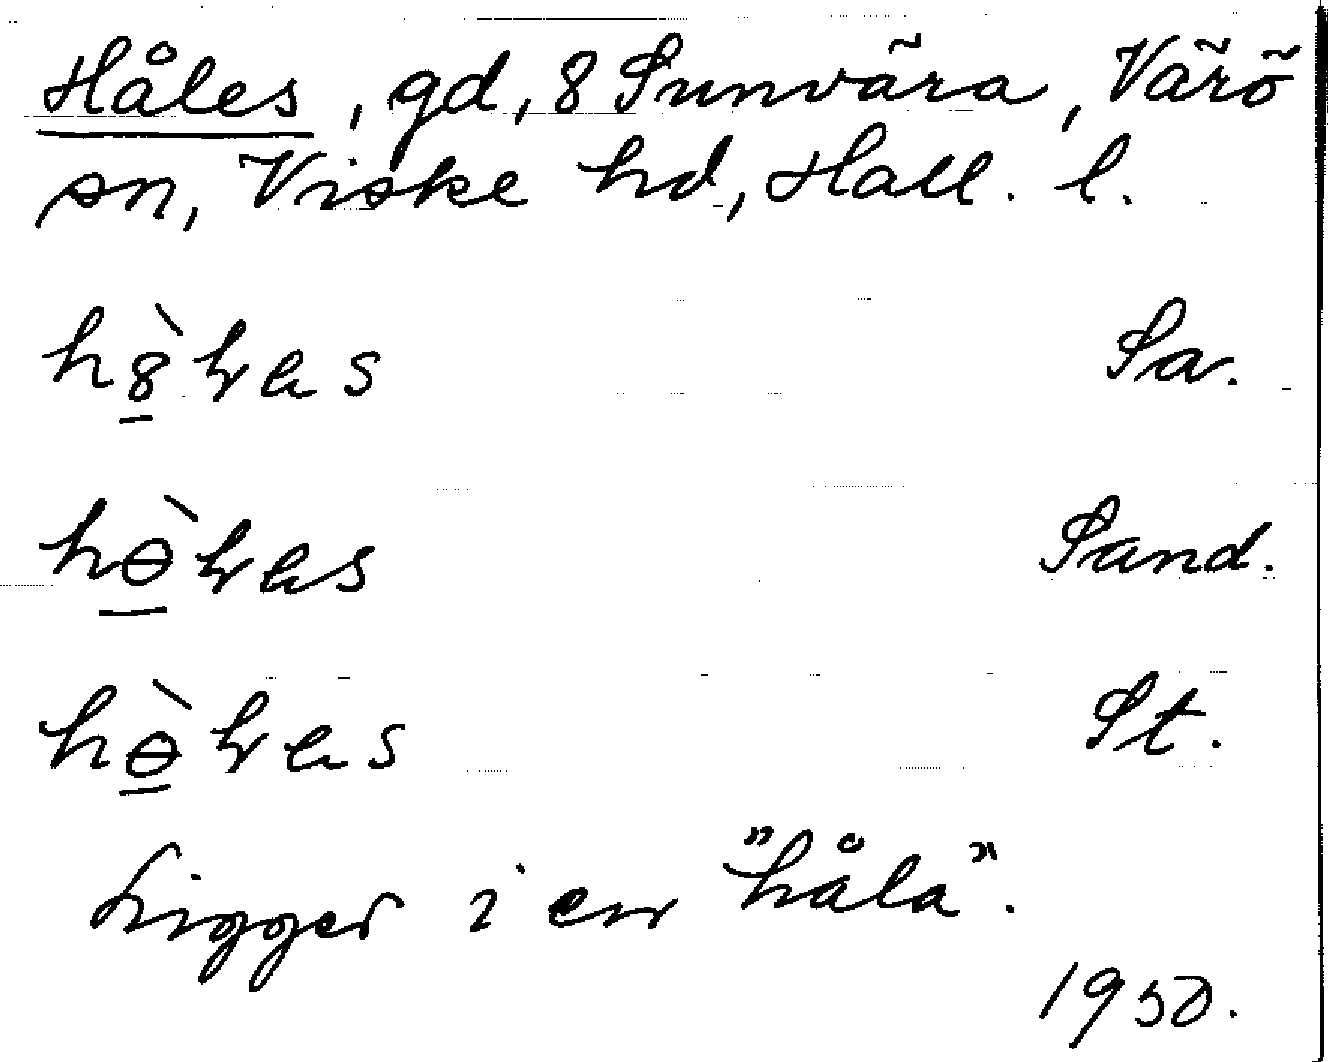 Håles, gd, 8 Sunvära, Värö
sn, Viske hd, Hall. l.
h8̠̀ɬas Sa.
hɵ̠̀ɬas Sand.
hɵ̠̀ɬas St.
Ligger i en "håla".
1950.